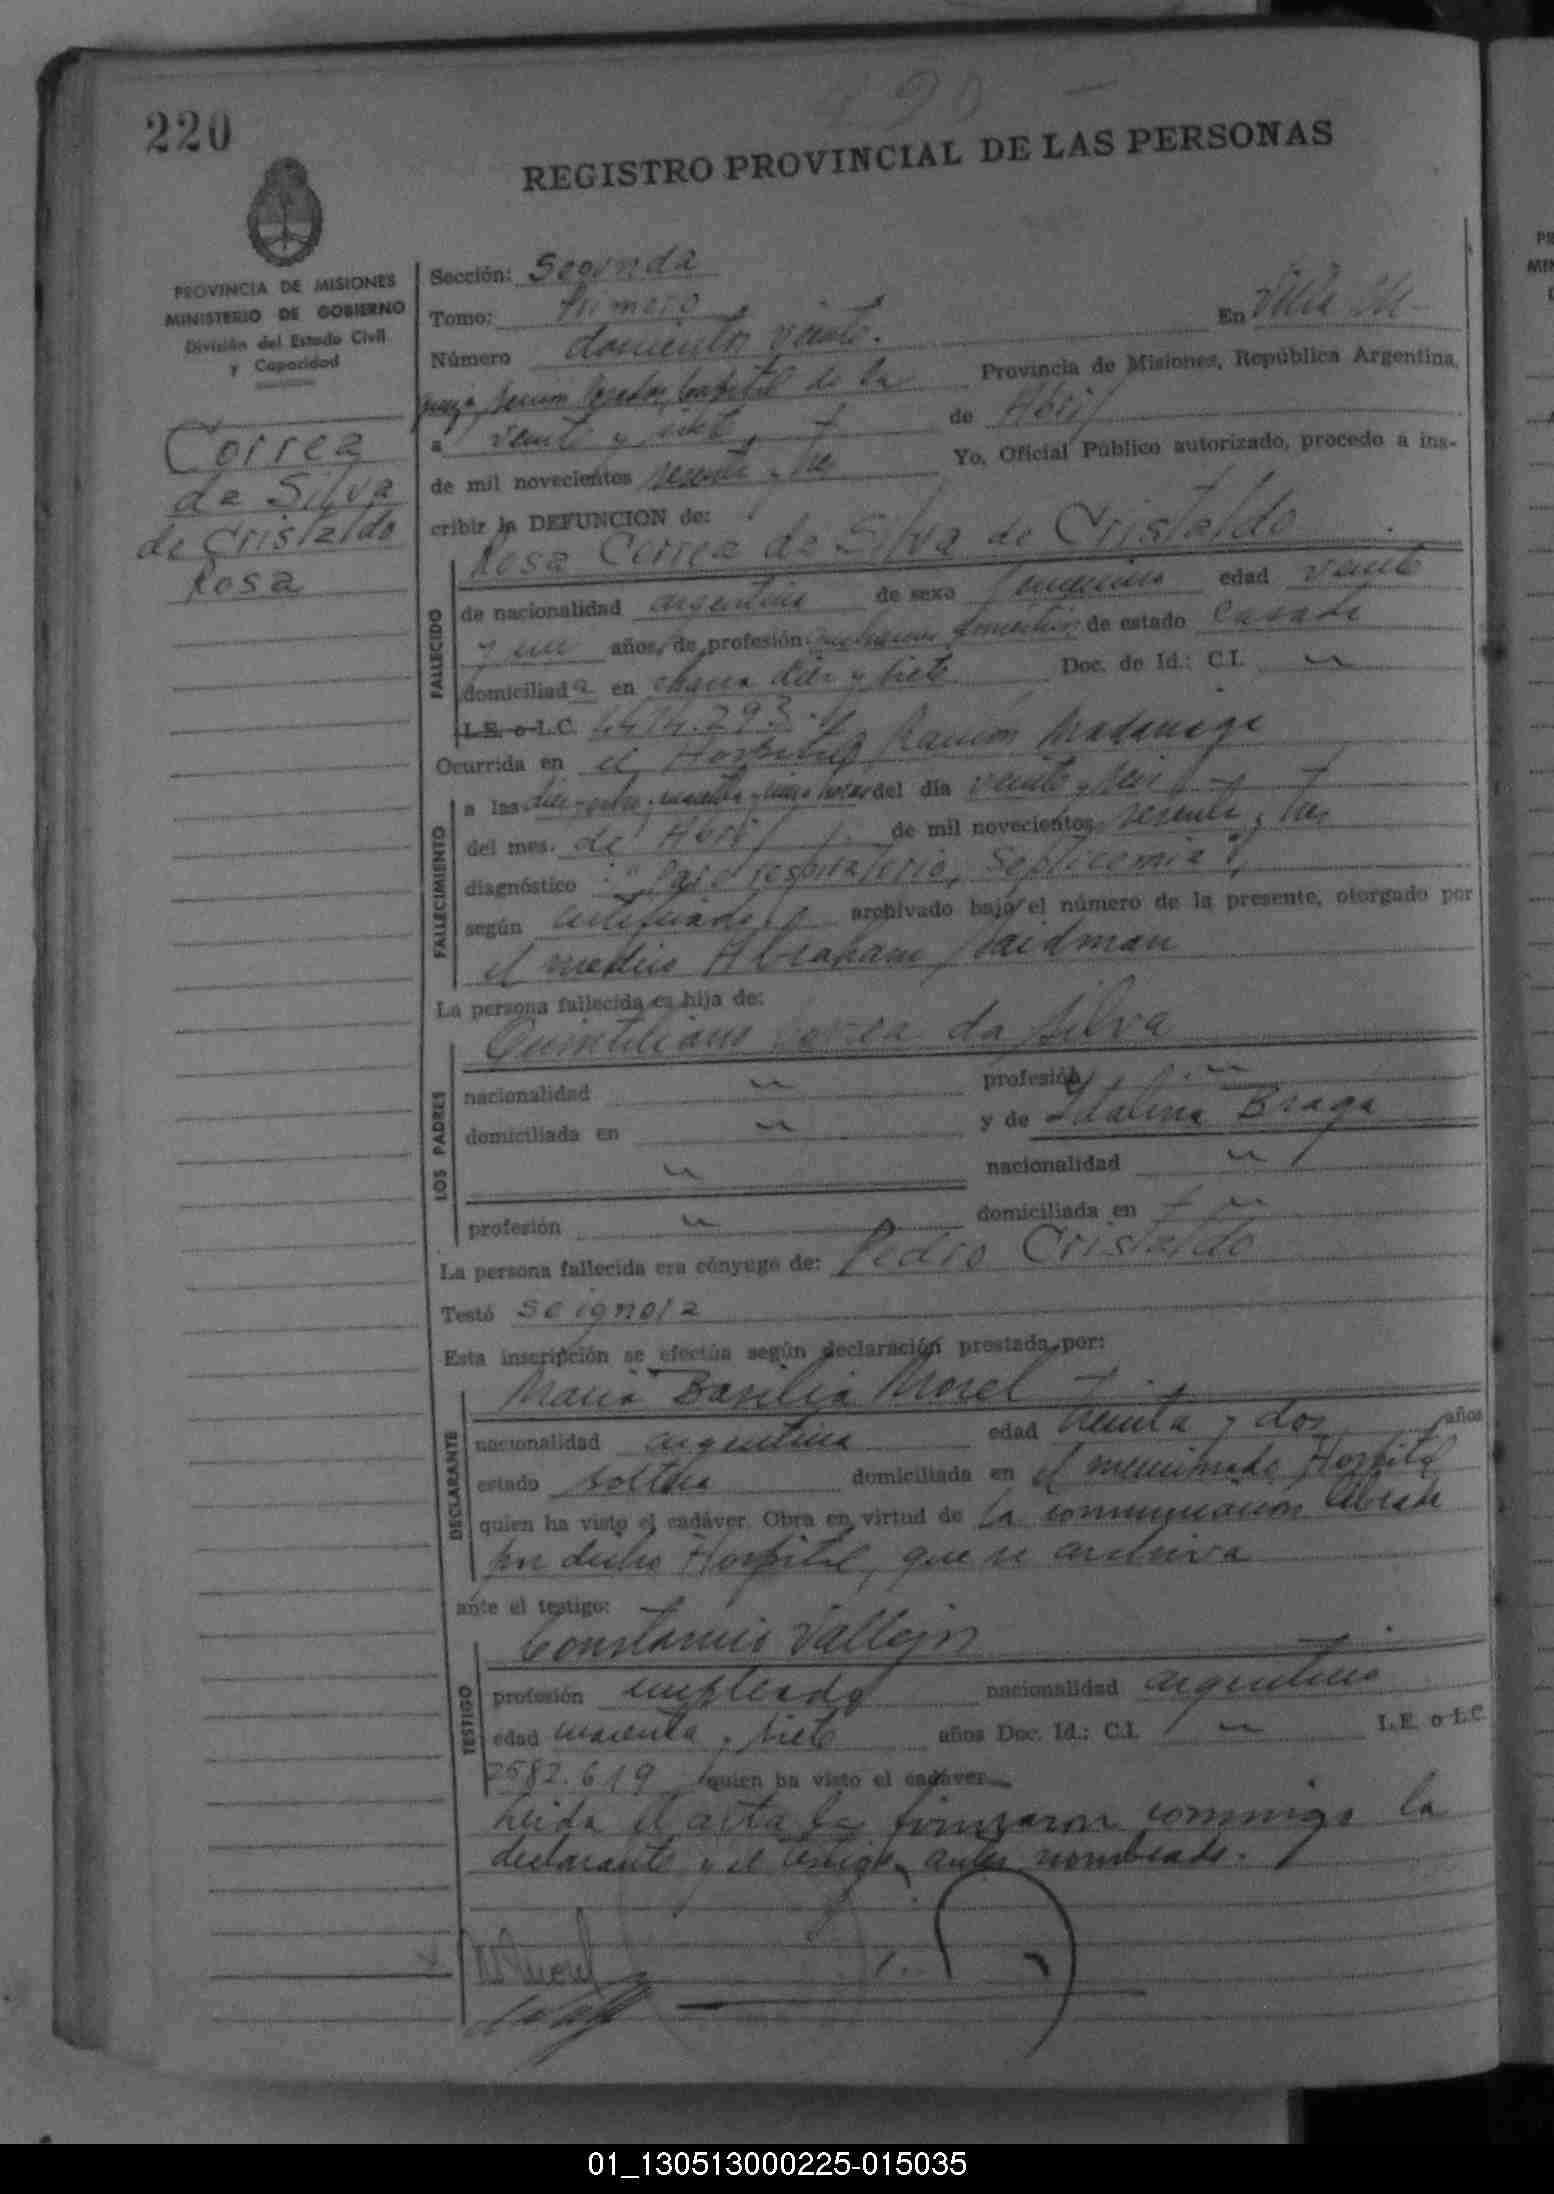 220
REGISTRO PROVINCIAL DE LAS PERSONAS
PROVINCIA DE MISIONES
MINISTERIO DE GOBIERNO
División del Estado Civil
y Capacidad
Correa
da Silva
de Cristaldo
Rosa
Sección: Segunda
Tomo: Primero
En Villa
Número doscientos veinte.
de la Provincia de Misiones, República Argentina,
a veinte y siete de Abril
de mil novecientos sesenta y tres Yo, Oficial Público autorizado, procedo a ins-
cribir la DEFUNCION de:
Rosa Correa da Silva de Cristaldo
FALECIDO
de nacionalidad argentina de sexo femenino edad veinte
y un años, de profesión quehaceres domésticos de estado casada
domiciliada en chacra diez y siete Doc. de Id.: C.I. "
L.E. o L.C. 4414.293.
Ocurrida en el Hospital Ramón Madariaga
FALLECIMIENTO
a las diez y ocho y cuarenta y cinco horas del día veinte y seis
del mes. de Abril de mil novecientos sesenta y tres
diagnóstico : "Paro respiratorio, Septicemia",
según certificado archivado bajo el número de la presente, otorgado por
el médico Abraham Saidman
La persona fallecida es hija de:
Quintiliano Correa da Silva
LOS PADRES
nacionalidad " profesión "
domiciliada en " y de Idalina Braga
" nacionalidad "
profesión " domiciliada en "
La persona fallecida era cónyuge de: Pedro Cristaldo
Testó se ignora
Esta inscripción se efectúa según declaración prestada por:
Maria Basilia Morel
DECLARANTE
nacionalidad argentina edad treinta y dos años
estado soltera domiciliada en el mencionado Hospital
quien ha visto el cadáver. Obra en virtud de la comunicación librada
por dicho Hospital, que se archiva
ante el testigo:
Constancio Vallejos
TESTIGO
profesión empleado nacionalidad argentino
edad cuarenta y siete años Doc. Id.: C.I. " L.E. o L.C.
2582.619 quien ha visto el cadáver.
Leida el acta la firmaron conmigo la
declarante y el testigo antes nombrado.
Morel
01_130513000225-015035